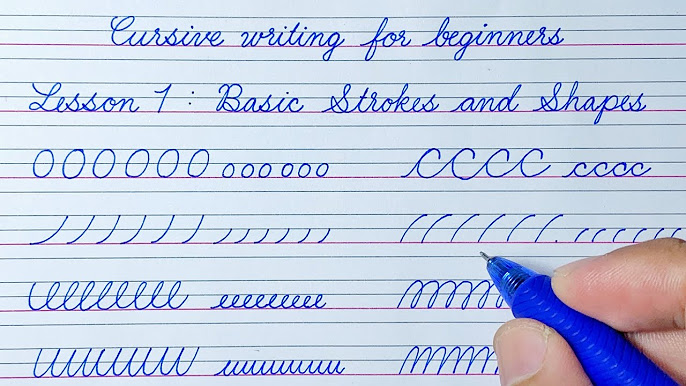 Cursive writing for beginners
Lesson 1 : Basic Strokes and Shapes
OOOOOOO oooooo CCCC cccc